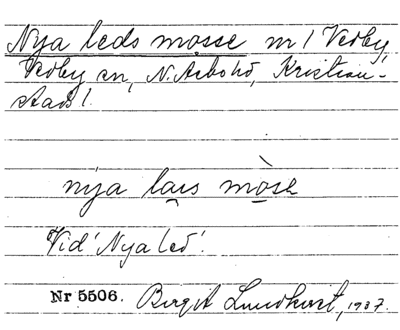 Nya leds mosse nr 1 Verby,
Verby sn, N. Åsbo hd, Kristian-
stads l.
nẏa lais mòse
Vid 'Nya led'.
Nr 5506. Birgit Lundkvist, 1937.